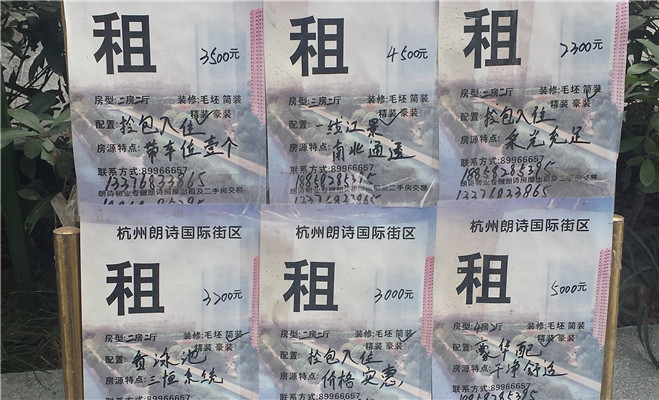 租 3500元
房型:二房二厅 装修:毛坯 简装
精装 豪装
配置: 拎包入住
房源特点: 带车位壹个
联系方式:89966657
13376833865
朗诗物业专做朗诗房屋出租及二手房交易
租 4500元
房型:三房二厅 装修:毛坯 简装
精装 豪装
配置: 一线江景
房源特点: 南北通透
联系方式:89966657
18858285385
朗诗物业专做朗诗房屋出租及二手房交易
13376833865
租 2300元
房型:二房二厅 装修:毛坯 简装
精装 豪装
配置: 拎包入住
房源特点: 采光充足
联系方式:89966657
18858285385
朗诗物业专做朗诗房屋出租及二手房交易
13376833865
杭州朗诗国际街区
租 3200元
房型:二房二厅 装修:毛坯 简装
精装 豪装
配置: 泳池
房源特点: 三恒系统
联系方式:89966657
杭州朗诗国际街区
租 3000元
房型:二房二厅 装修:毛坯 简装
精装 豪装
配置: 拎包入住
房源特点: 价格实惠
联系方式:89966657
杭州朗诗国际街区
租 5000元
房型:4房2厅 装修:毛坯 简装
精装 豪装
配置: 豪华配
房源特点: 干净舒适
联系方式:89966657